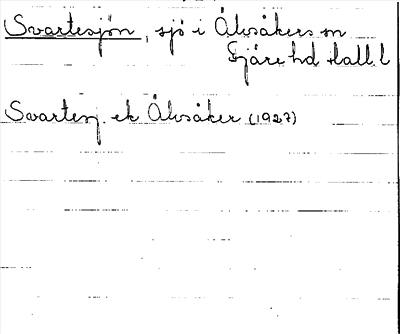 Svartesjön, sjö i Älvsåkers sn
Fjäre hd Hall. l
Svartesj. ek Älvsåker (1927)